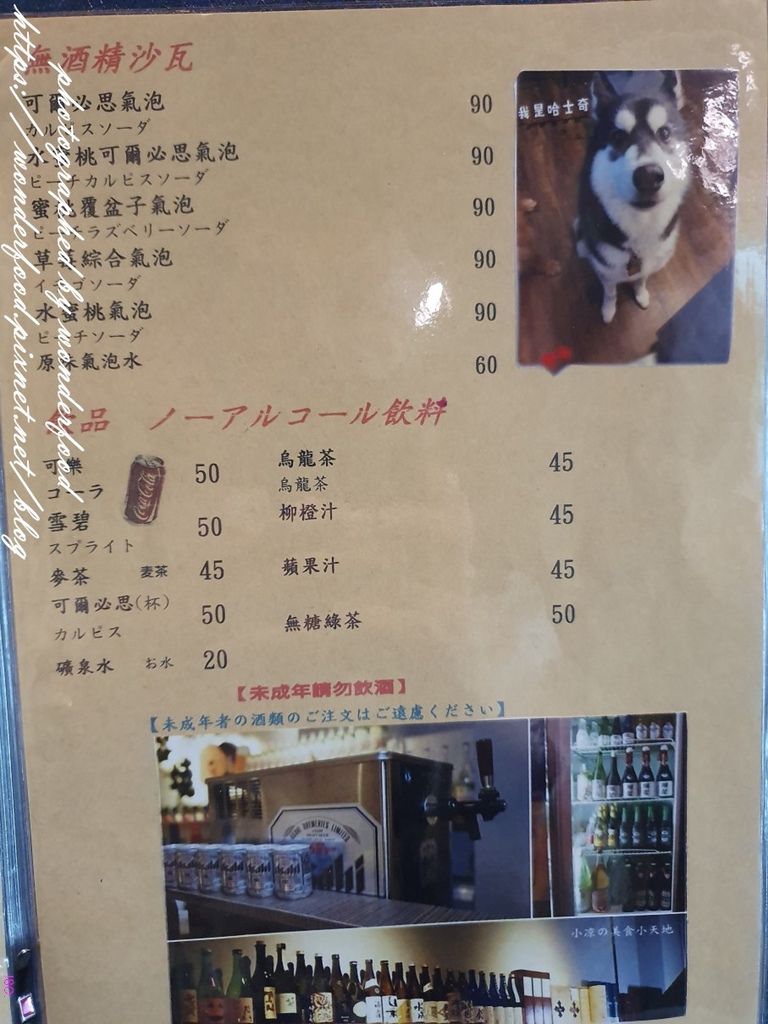 無酒精沙瓦
可爾必思氣泡 90
カルピスソーダ
水蜜桃可爾必思氣泡 90
ピーチカルピスソーダ
蜜桃覆盆子氣泡 90
ピーチラズベリーソーダ
草莓綜合氣泡 90
イチゴソーダ
水蜜桃氣泡 90
ピーチソーダ
原味氣泡水 60
我是哈士奇
飲品 ノーアルコール飲料
可樂 50
コーラ
Coca-Cola
雪碧 50
スプライト
麥茶 麦茶 45
可爾必思(杯) 50
カルピス
礦泉水 お水 20
烏龍茶 45
烏龍茶
柳橙汁 45
蘋果汁 45
無糖綠茶 50
【未成年請勿飲酒】
【未成年者の酒類のご注文はご遠慮ください】
BREWERIES LIMITED
Asahi
小凉の美食小天地
photographed by wonderfood
https://wonderfood.pixnet.net/blog